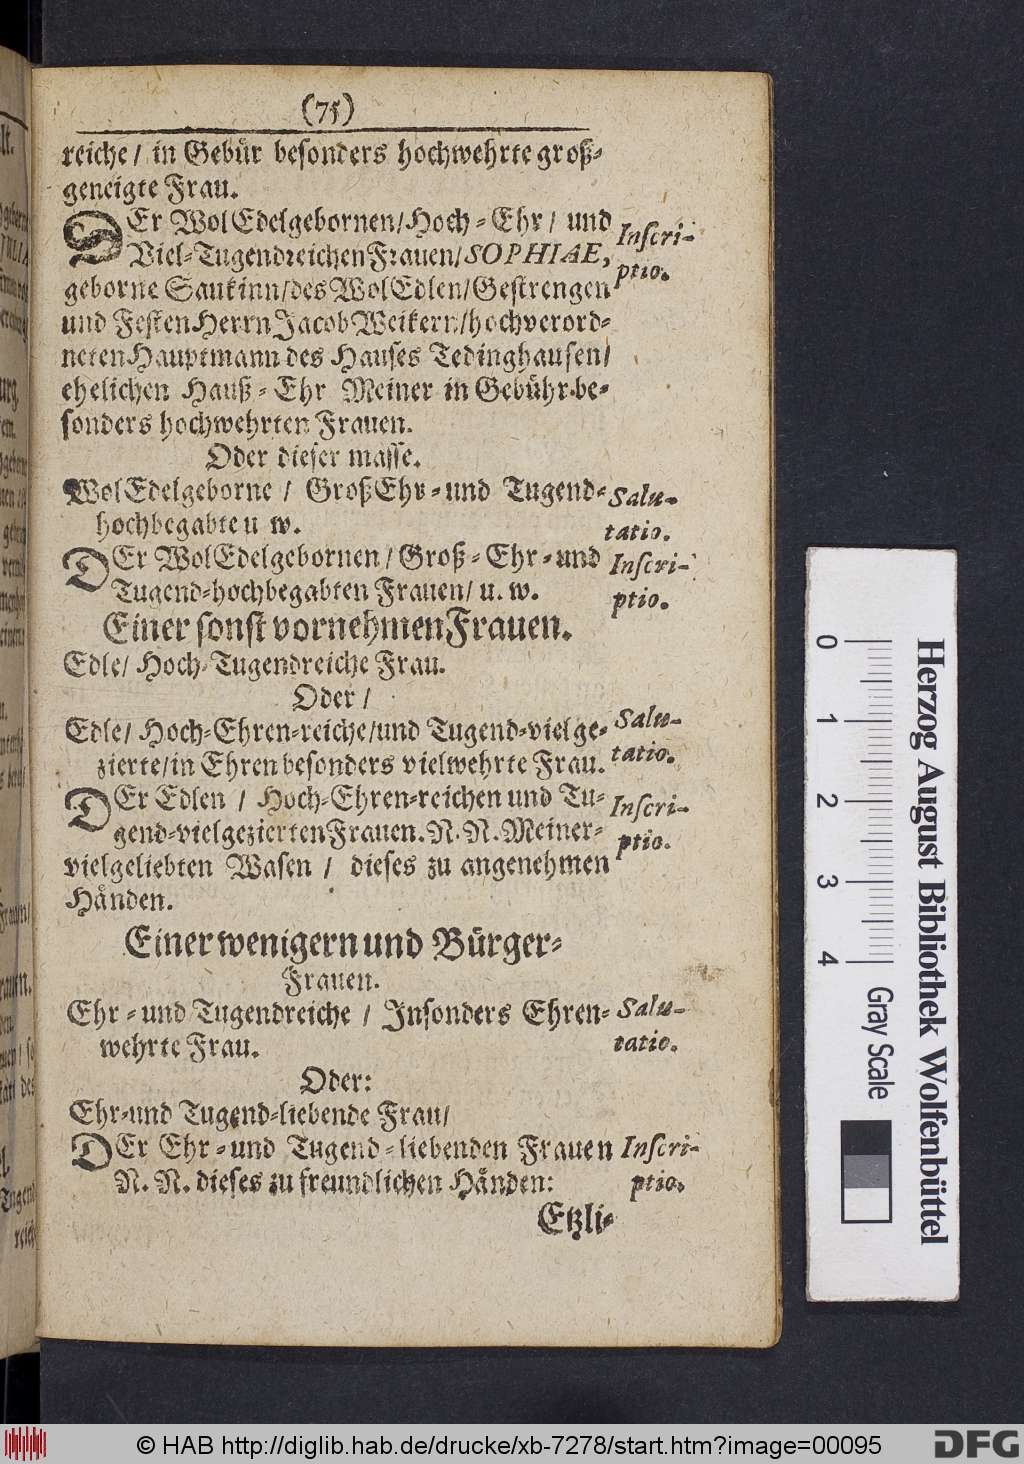 (75)
reiche / in Gebür besonders hochwehrte groß-
geneigte Frau.
DEr WolEdelgebornen/Hoch-Ehr/ und
Viel-Tugendreichen Frauen/ SOPHIAE,
Inscri-
ptio.
geborne Saukinn/des WolEdlen/Gestrengen
und Festen Herrn Jacob Weikern/hochverord-
neten Hauptmann des Hauses Tedinghausen/
ehelichen Hauß-Ehr Meiner in Gebühr be-
sonders hochwehrten Frauen.
Oder dieser masse.
WolEdelgeborne / GroßEhr-und Tugend-
hochbegabte u w.
Salu-
tatio.
DEr WolEdelgebornen/ Groß-Ehr-und
Tugend-hochbegabten Frauen/ u. w.
Inscri-
ptio.
Einer sonst vornehmen Frauen.
Edle/ Hoch-Tugendreiche Frau.
Oder /
Edle/ Hoch-Ehren-reiche/und Tugend-vielge-
zierte/in Ehren besonders vielwehrte Frau.
Salu-
tatio.
DEr Edlen / Hoch-Ehren-reichen und Tu-
gend-vielgezierten Frauen. N. N. Meiner-
Inscri-
ptio.
vielgeliebten Wasen / dieses zu angenehmen
Händen.
Einer wenigern und Bürger-
Frauen.
Ehr-und Tugendreiche / Insonders Ehren-
wehrte Frau.
Salu-
tatio.
Oder:
Ehr-und Tugend-liebende Frau/
DEr Ehr-und Tugend-liebenden Frauen
N. N. dieses zu freundlichen Händen:
Inscri-
ptio.
Etzli-
0 1 2 3 4
Gray Scale
Herzog August Bibliothek Wolfenbüttel
© HAB http://diglib.hab.de/drucke/xb-7278/start.htm?image=00095
DFG